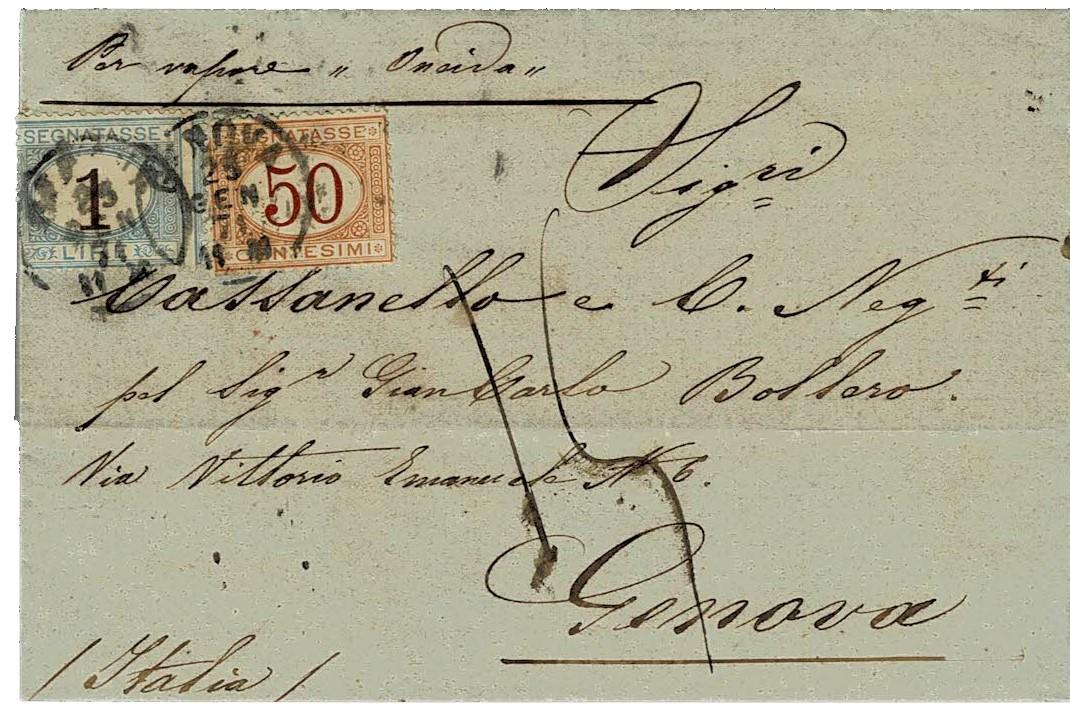 Per vapore " Oneida "
SEGNATASSE
1
LIRE
SEGNATASSE
50
CENTESIMI
23
GEN
Sigri
Cassanello e C. Neg.ti
pel Sigr GianCarlo Bollero.
Via Vittorio Emanuele N 6.
15
Genova
/ Italia /